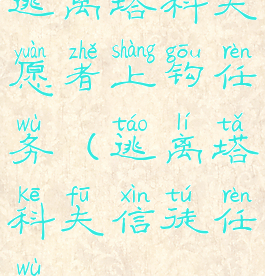 逃离塔科夫
yuàn zhě shàng gōu rèn
愿者上钩任
wù táo lí tǎ
务(逃离塔
kē fū xìn tú rèn
科夫信徒任
wù